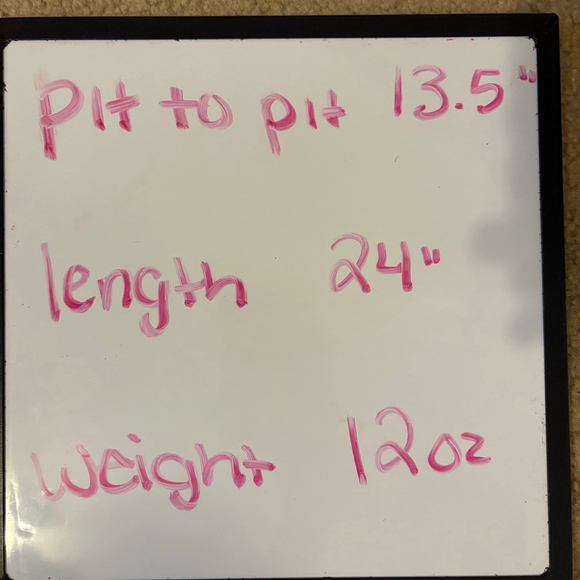 Pit to pit 13.5"
length 24"
weight 12oz